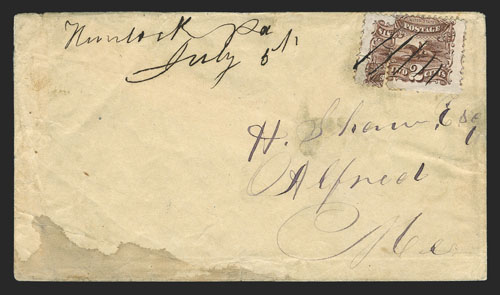 Hunlock Pa
July 5th
POSTAGE
2
H. Shaw, Esq
Alfred
Me